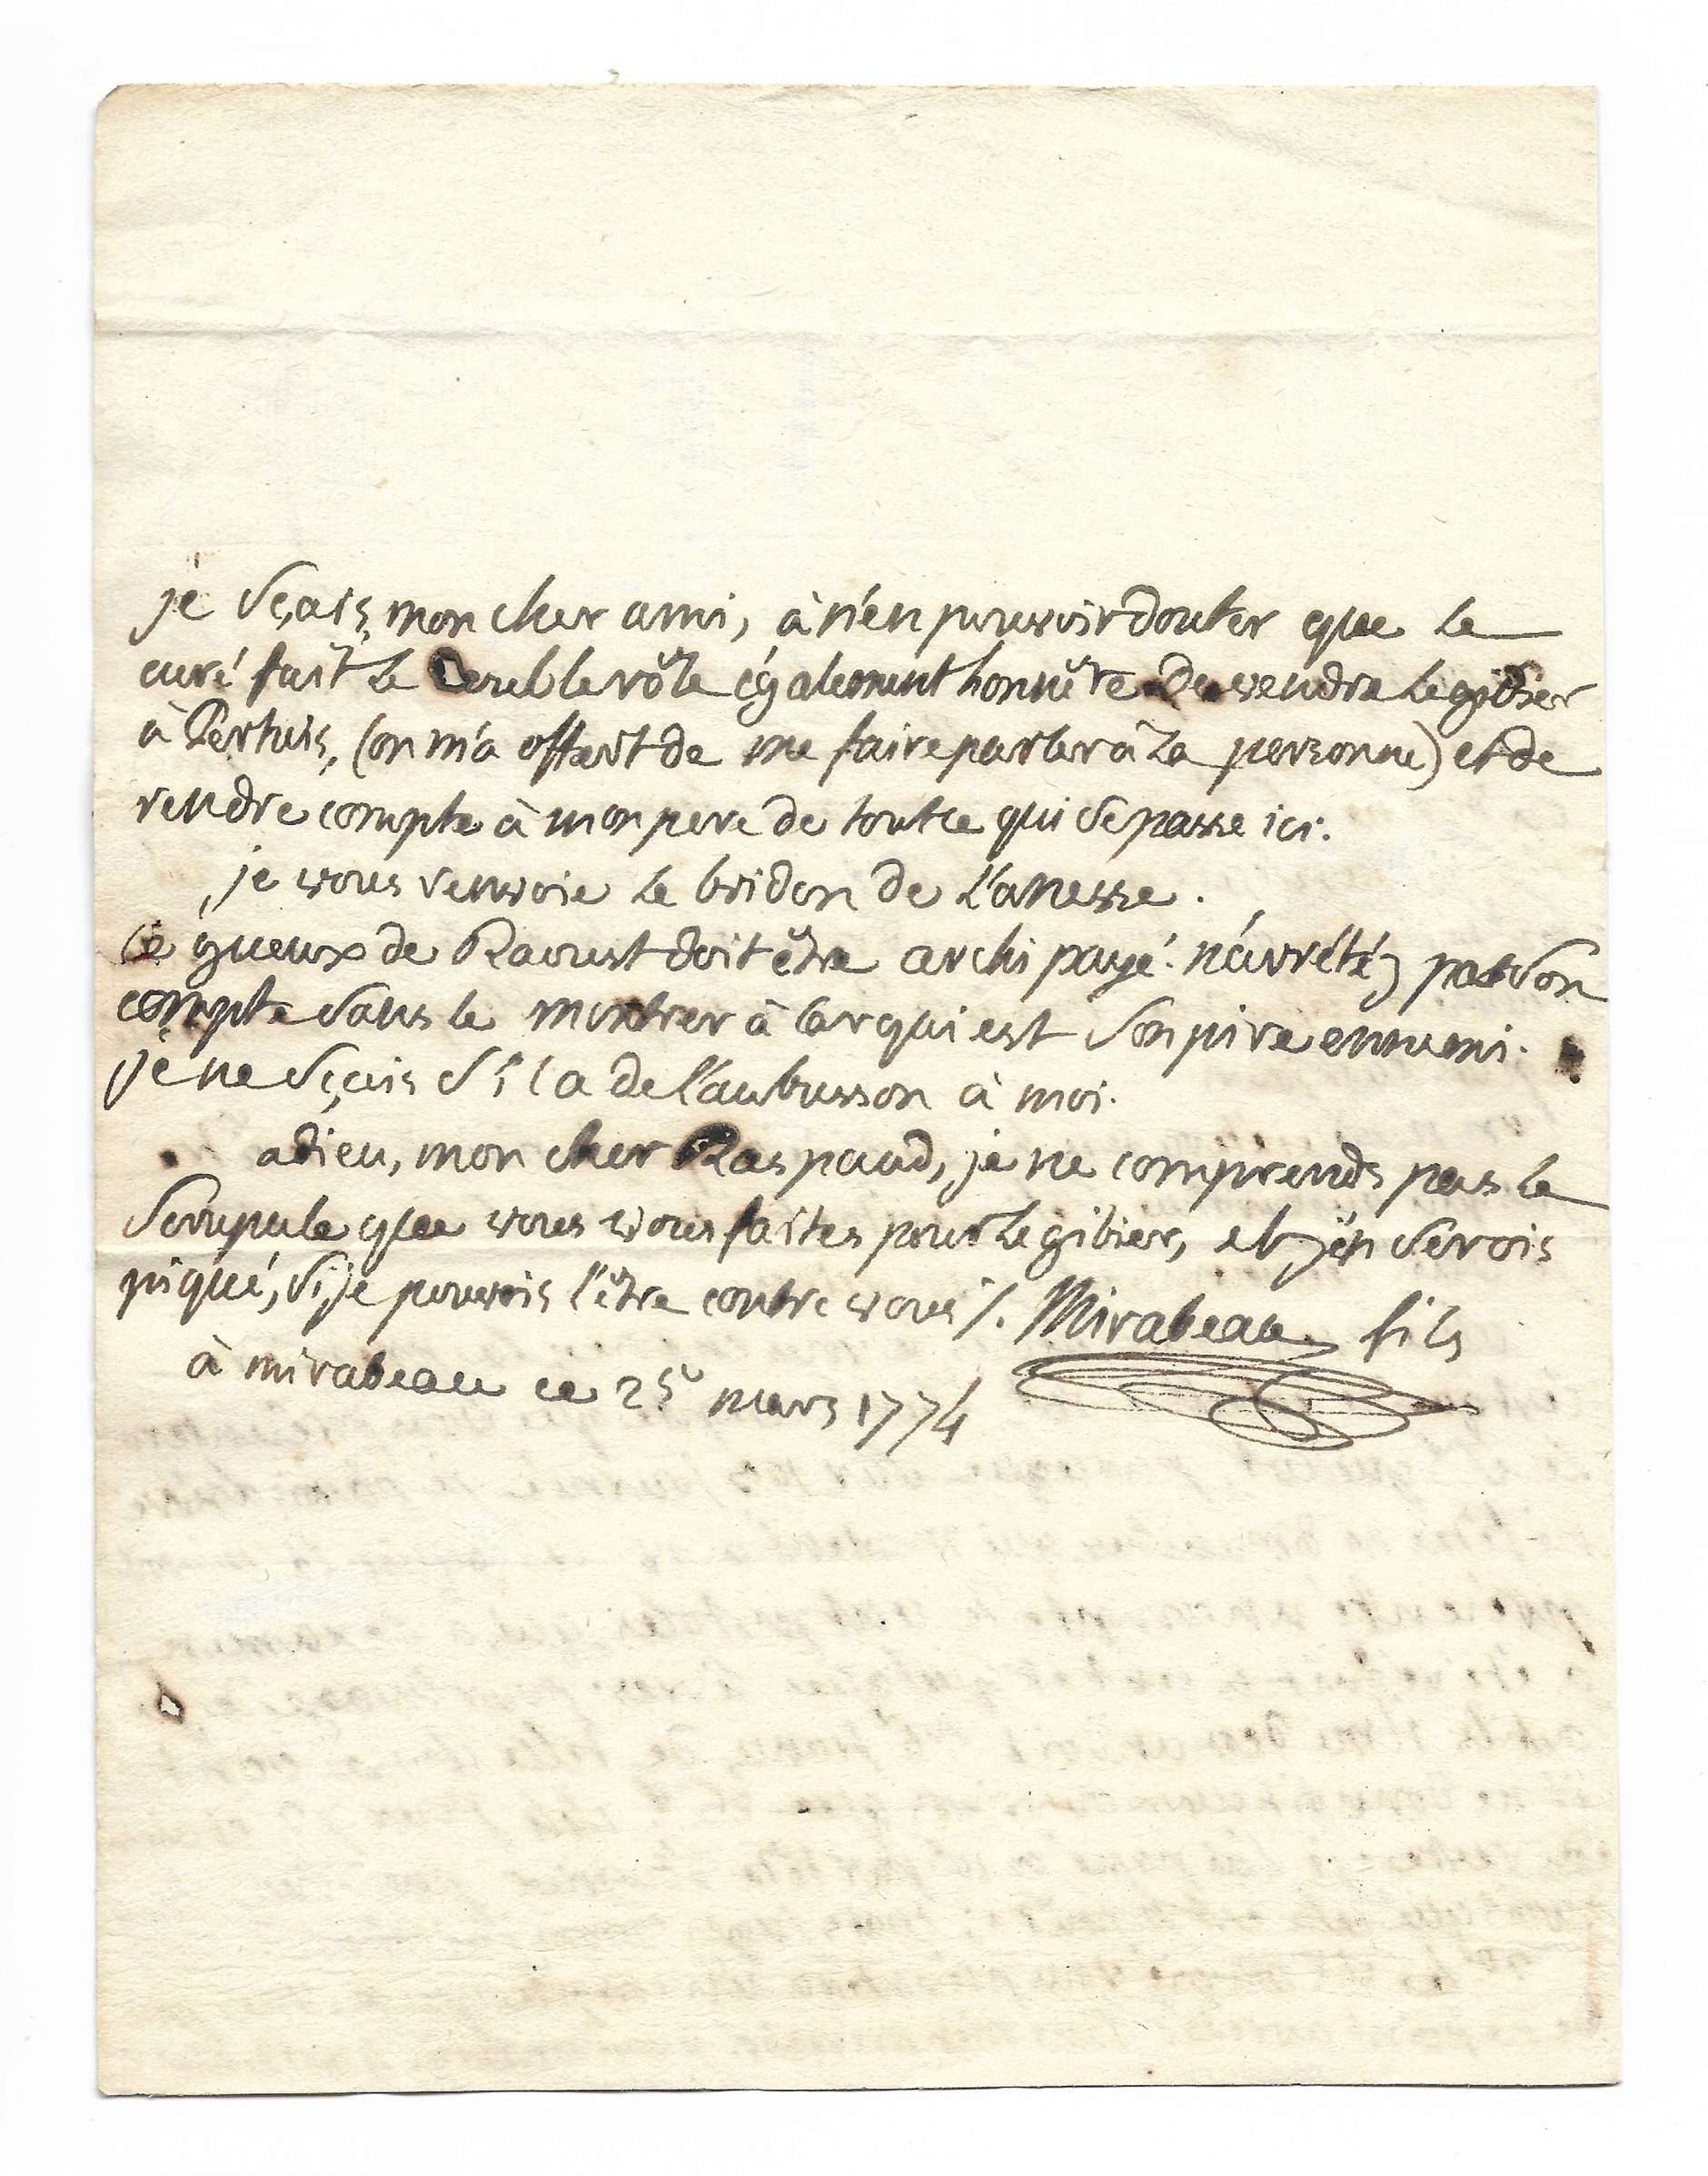 je sçais, mon cher ami, à n'en pouvoir douter que le
curé fait le double rôle également honnête de vendre le gibier
à Pertuis, (on m'a offert de me faire parler à la personne) et de
rendre compte à mon pere de tout ce qui se passe ici.
je vous renvoie le bridon de l'anesse.
ce gueux de Raoust doit être archi payé. n'arrétéz pas son
compte sans le montrer à qui est son pire ennemi.
je ne sçais s'il a de l'aubusson à moi.
adieu, mon cher Raspaud, je ne comprends pas le
scrupule que vous vous faites pour le gibier, et j'en serois
piqué, si je pouvois l'être contre vous /. Mirabeau fils
à mirabeau ce 25 mars 1774